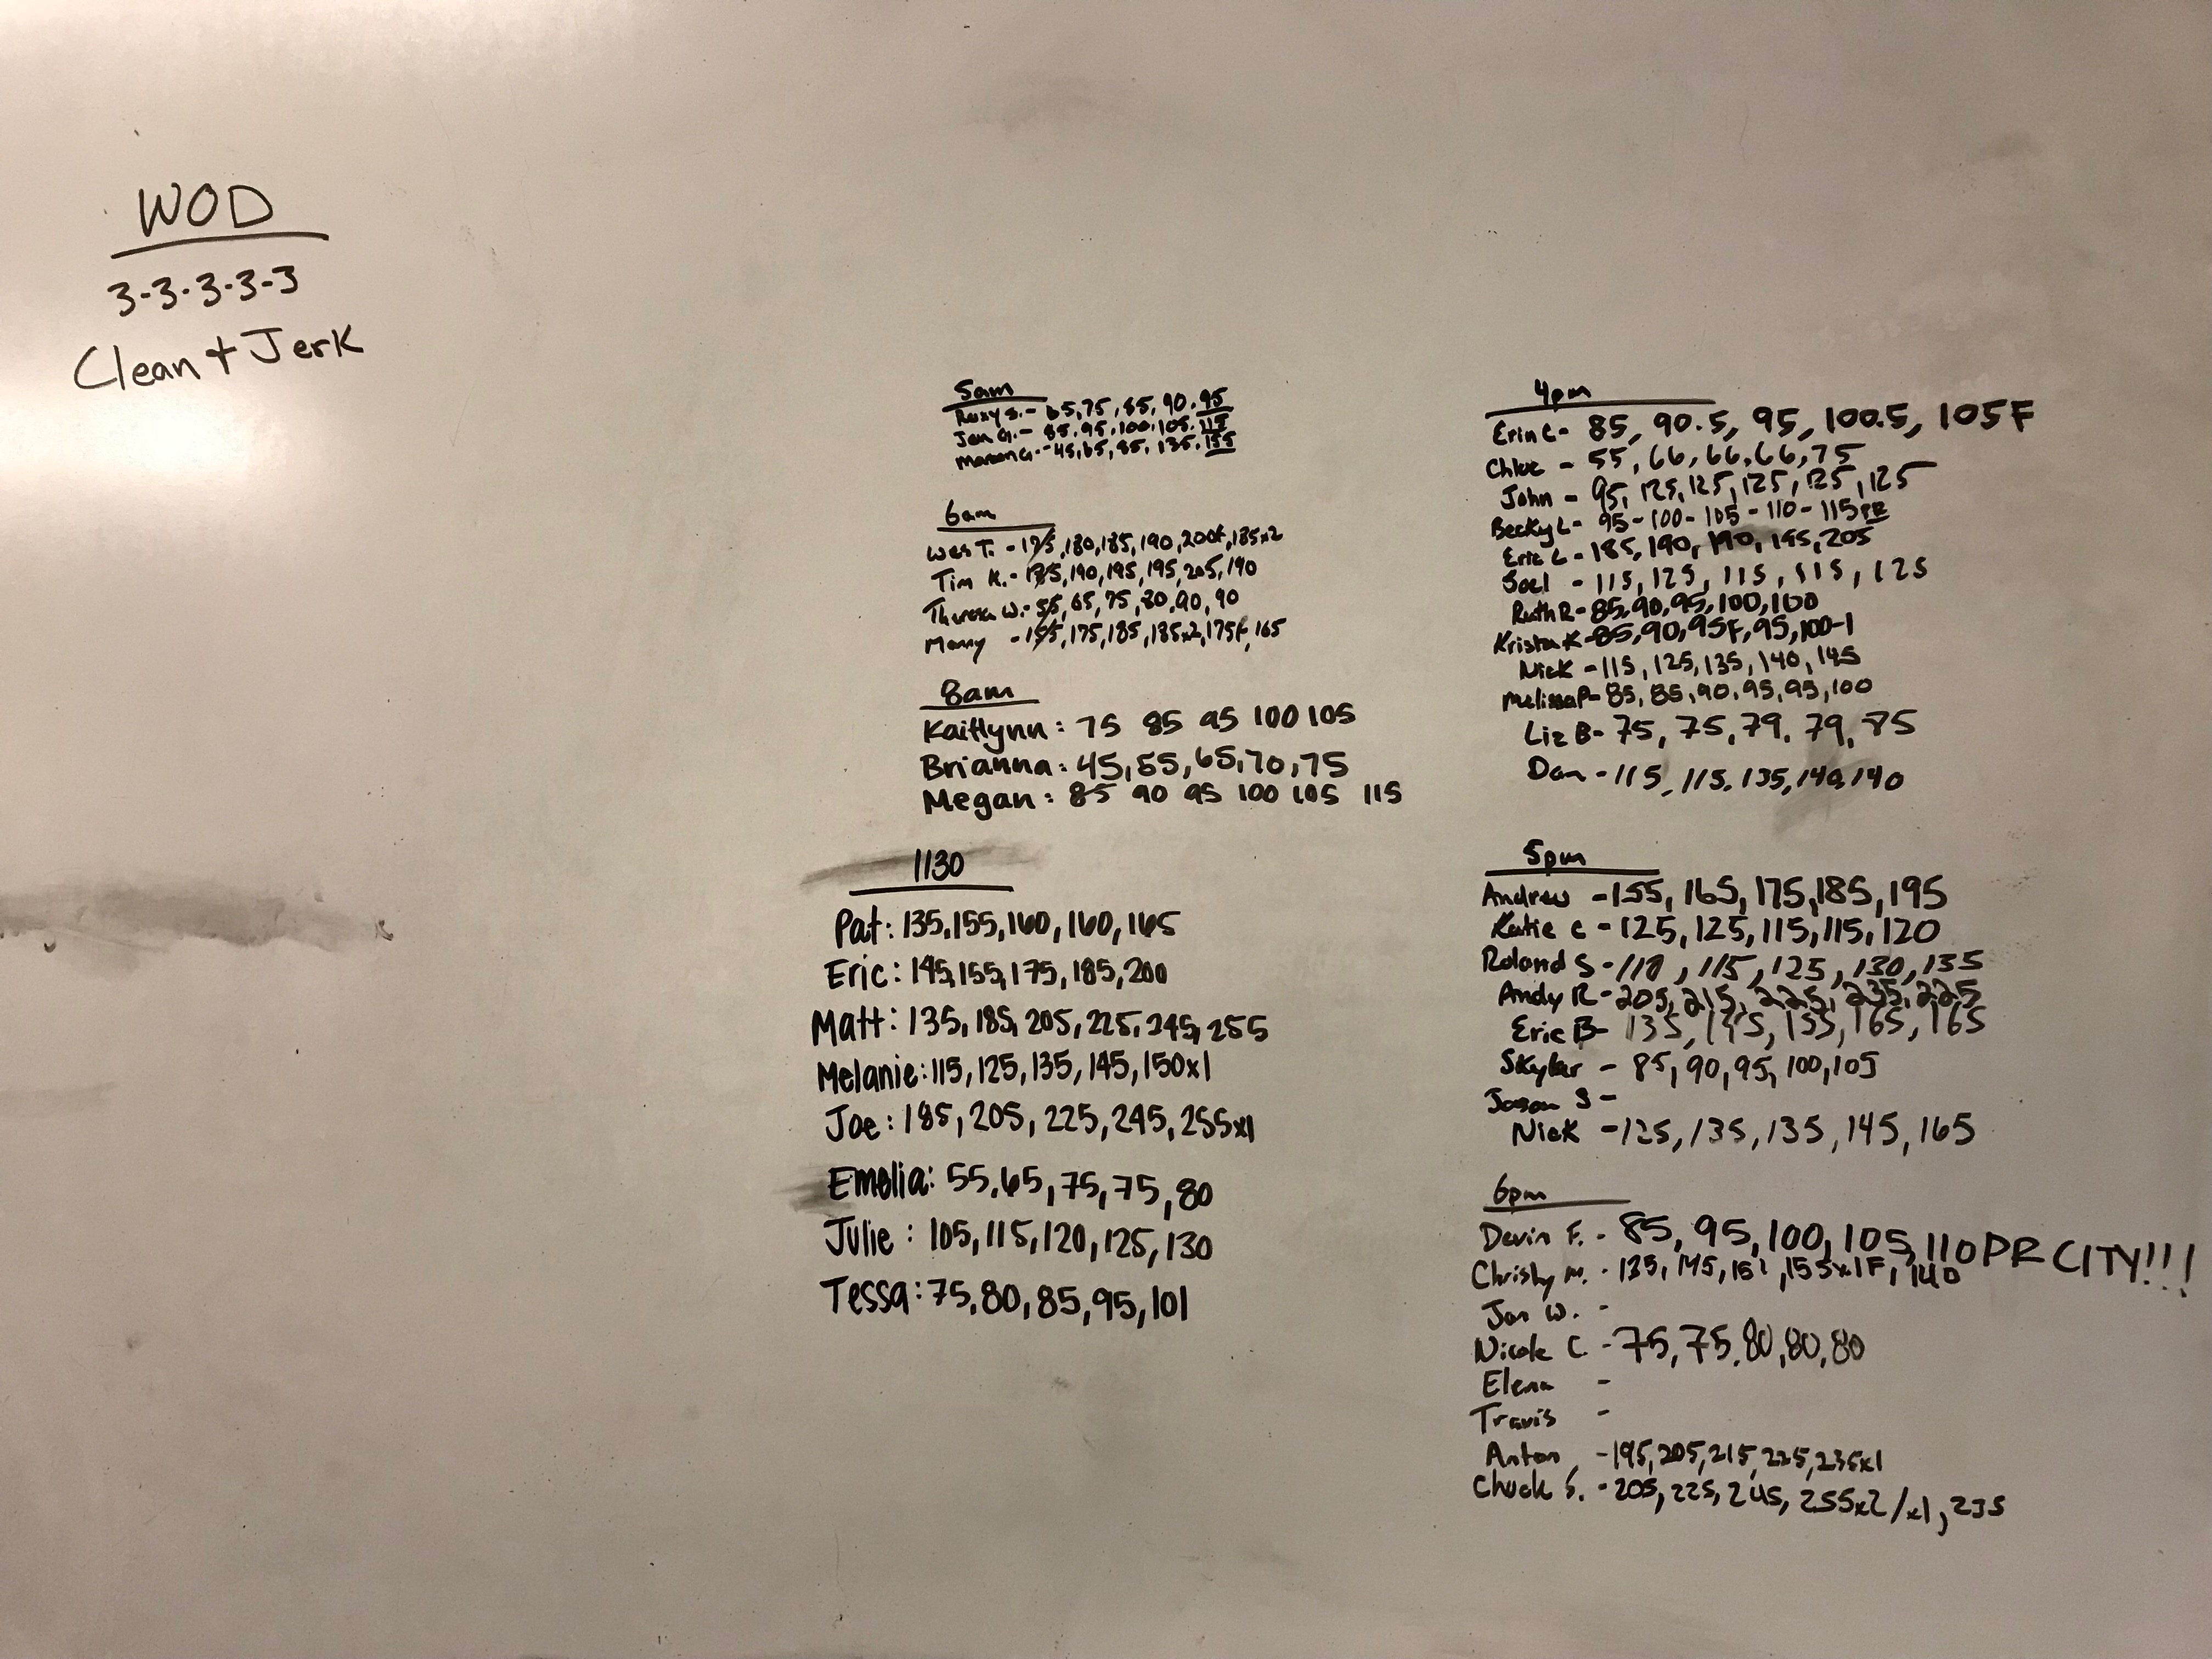 WOD
3-3-3-3-3
Clean + Jerk
5am
Roxy S. - 65, 75, 85, 90, 95
Jen G. - 85, 95, 100, 105, 115
- 45, 65, 85, 135, 155
6am
Wes T. - 175, 180, 185, 190, 200F, 185x2
Tim K. - 185, 190, 195, 195, 205, 190
Theresa W. - 55, 65, 75, 80, 90, 90
Manny - 155, 175, 185, 185x2, 175F, 165
8am
Kaitlynn: 75 85 95 100 105
Brianna: 45, 55, 65, 70, 75
Megan: 85 90 95 100 105 115
1130
Pat: 135, 155, 160, 160, 165
Eric: 145, 155, 175, 185, 200
Matt: 135, 185, 205, 225, 245, 255
Melanie: 115, 125, 135, 145, 150x1
Joe: 185, 205, 225, 245, 255x1
Emelia: 55, 65, 75, 75, 80
Julie: 105, 115, 120, 125, 130
Tessa: 75, 80, 85, 95, 101
4pm
Erin C - 85, 90.5, 95, 100.5, 105F
Chloe - 55, 66, 66, 66, 75
John - 95, 125, 125, 125, 125, 125
Becky L - 95 - 100 - 105 - 110 - 115 PR
Eric L - 185, 190, 190, 195, 205
Joel - 115, 125, 115, 115, 125
Ruth R - 85, 90, 95, 100, 100
Krista K - 85, 90, 95F, 95, 100-1
Nick - 115, 125, 135, 140, 145
Melissa P - 85, 85, 90, 95, 95, 100
Liz B - 75, 75, 79, 79, 85
Dan - 115, 115, 135, 140, 140
5pm
Andrew - 155, 165, 175, 185, 195
Katie C - 125, 125, 115, 115, 120
Roland S - 110, 115, 125, 130, 135
Andy R - 205, 215, 225, 235, 225
Eric B - 135, 145, 155, 165, 165
Skyler - 85, 90, 95, 100, 105
Jason S -
Nick - 125, 135, 135, 145, 165
6pm
Devin F. - 85, 95, 100, 105, 110 PR CITY!!!
Christy M. - 135, 145, 151, 155x1F, 140
Jon W. -
Nicole C. - 75, 75, 80, 80, 80
Elena -
Travis -
Anton - 195, 205, 215, 225, 235x1
Chuck S. - 205, 225, 245, 255x2/x1, 235